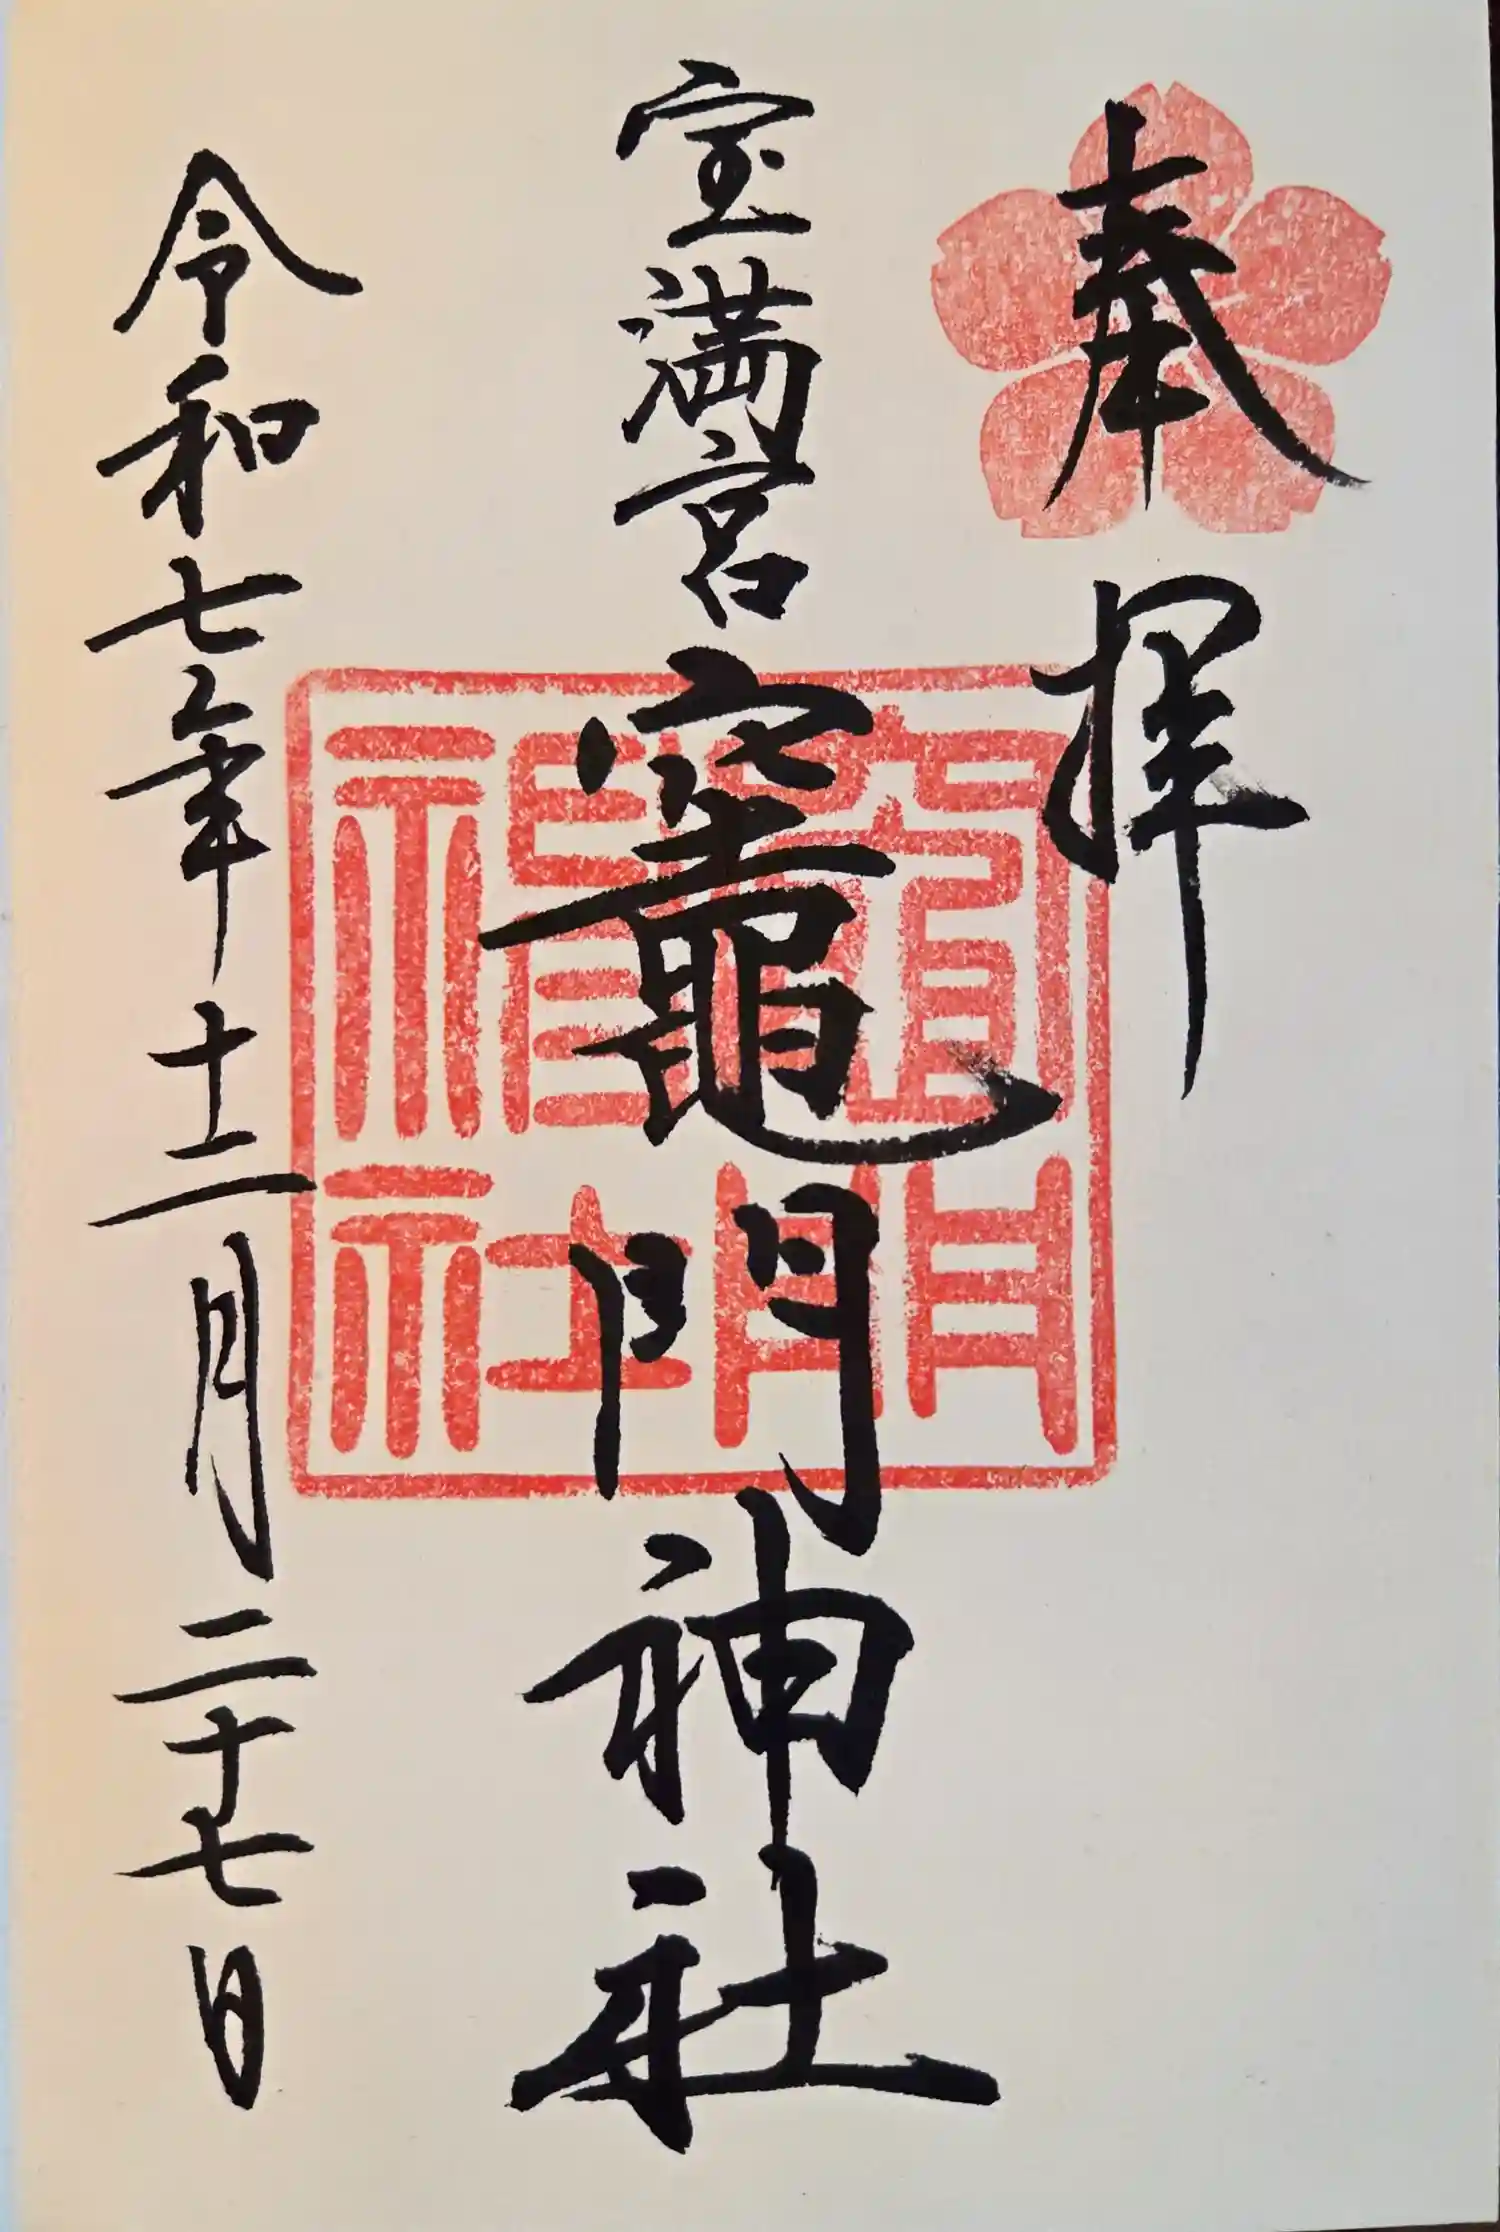 奉拝
宝満宮竈門神社
令和七年十二月二十七日
竈門
神社